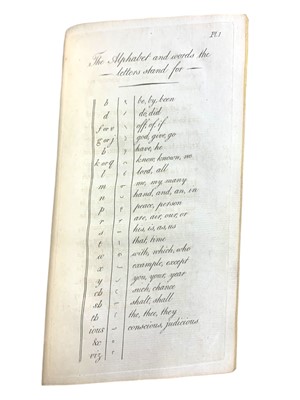 Pl.1
The Alphabet and words the
letters stand for
b be, by, been
d do, did
f or v off, of, if
g or j god, give, go
h have, he
k or q know, known, no
l lord, all
m me, my, many
n hand, and, an, in
p peace, person
r are, air, our, or
s his, is, as, us
t that, time
w with, which, who
x example, except
y you, your, year
ch such, chance
sh shalt, shall
th the, thee, they
ious conscious, judicious
viz